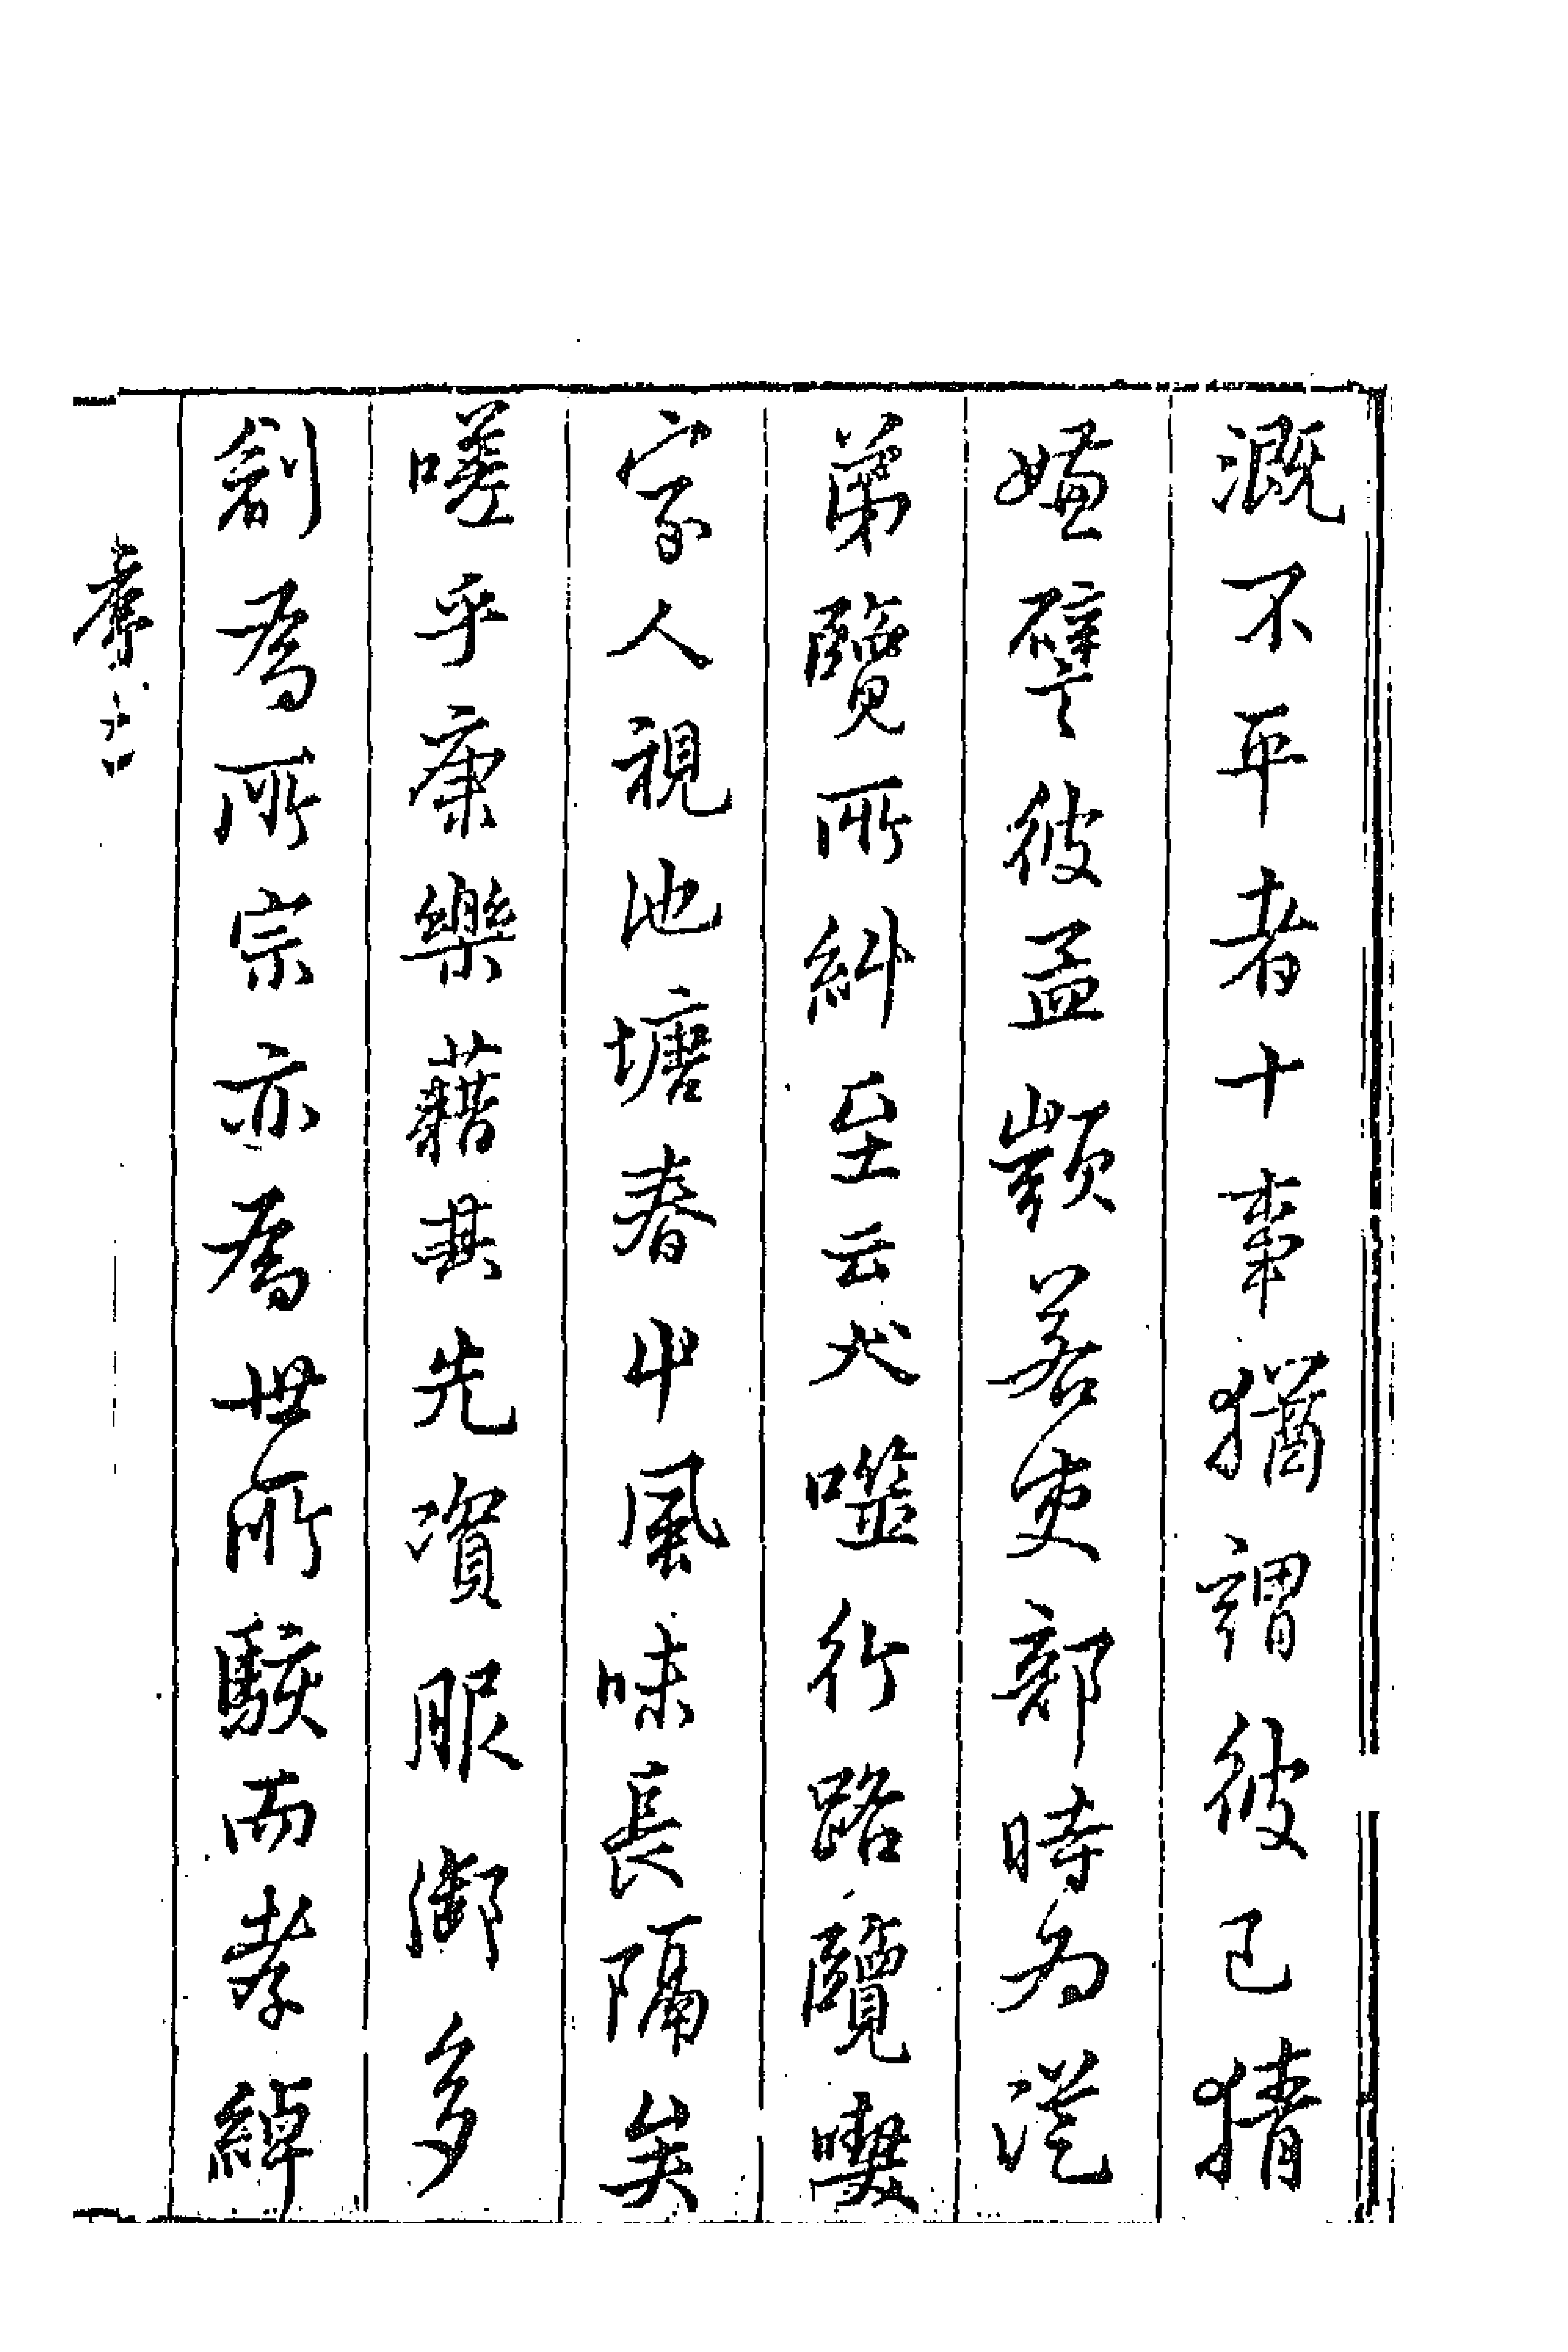 溉不平者十事猶謂彼已猜
嫌譬彼孟顗若吏部時為從
弟覽所糾至云犬噬行路覽喫
家人視池塘春艸風味長隔矣
嗟乎康樂藉其先資服御多
創為所宗亦為世所駭而孝綽